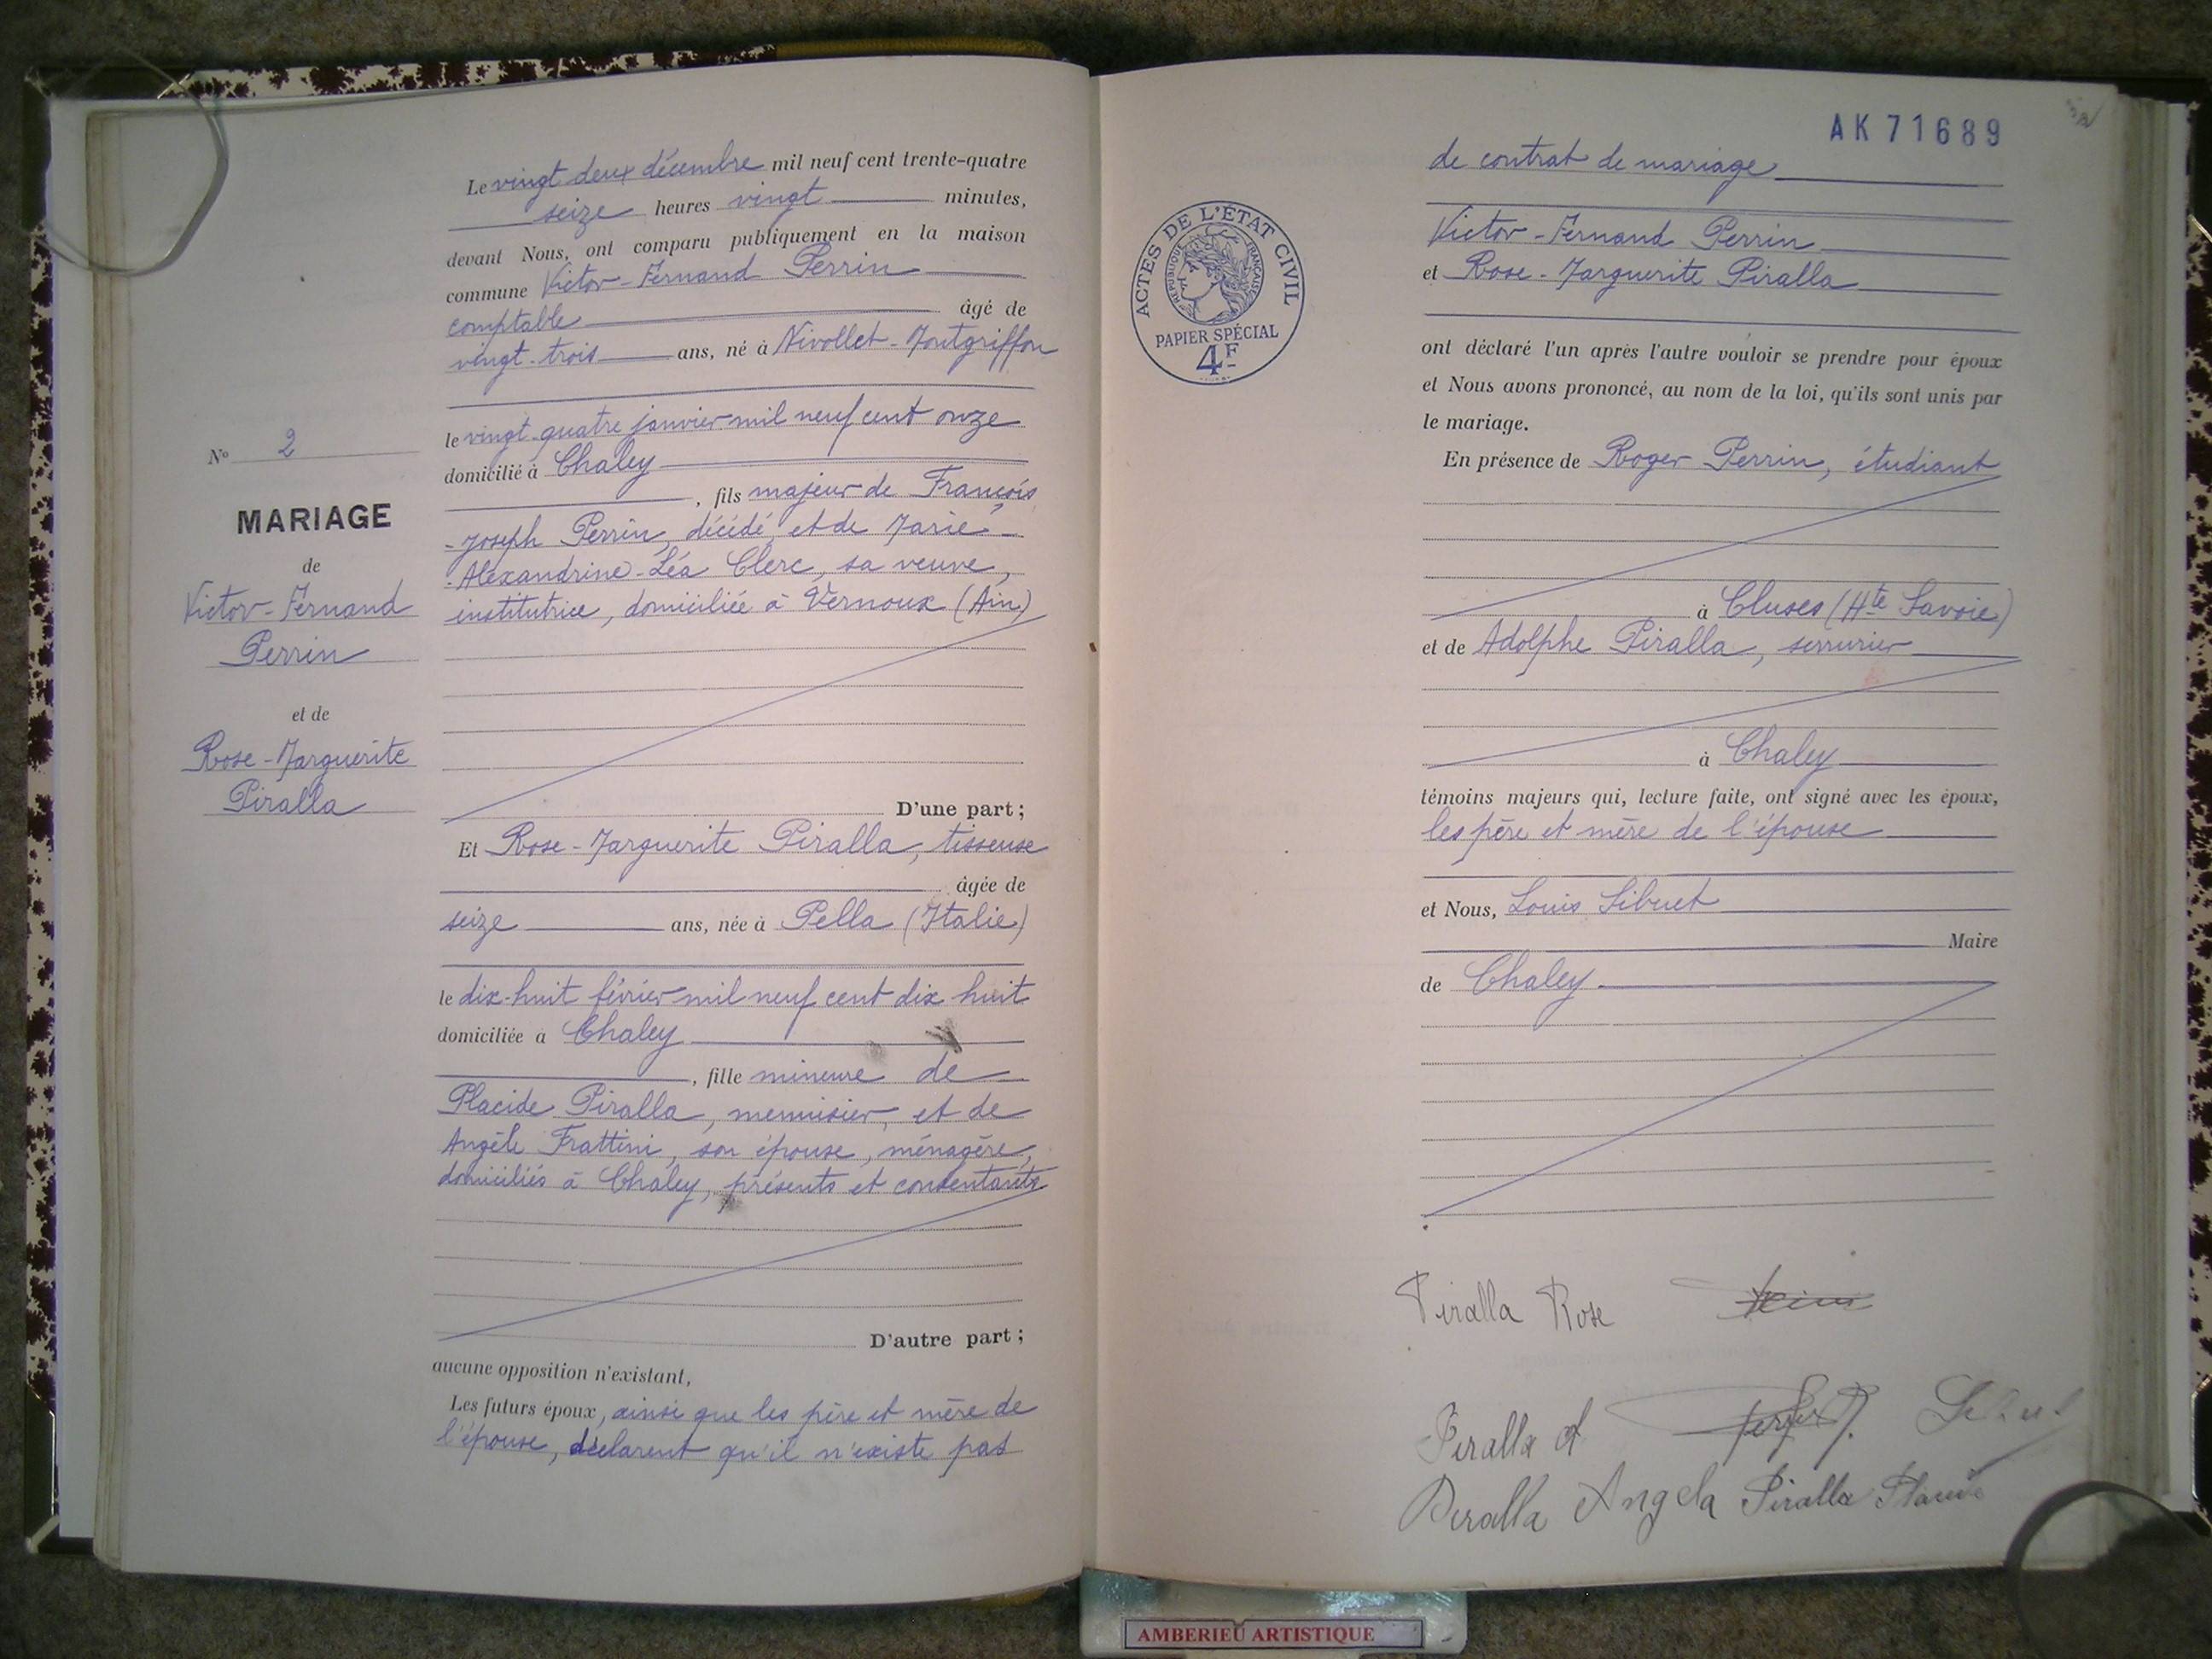 Le vingt deux décembre mil neuf cent trente-quatre
seize heures vingt minutes,
devant Nous, ont comparu publiquement en la maison
commune Victor-Fernand Perrin
comptable âgé de
vingt-trois ans, né à Nivollet-Montgriffon
le vingt-quatre janvier mil neuf cent onze
domicilié à Chaley
, fils majeur de François
-Joseph Perrin, décédé, et de Marie-
-Alexandrine-Léa Clerc, sa veuve,
institutrice, domiciliée à Vernoux (Ain)
D'une part;
Et Rose-Marguerite Piralla, tisseuse
âgée de
seize ans, née à Pella (Italie)
le dix-huit février mil neuf cent dix huit
domiciliée a Chaley
, fille mineure de
Placide Piralla, menuisier, et de
Angèle Frattini, son épouse, ménagère,
domiciliés à Chaley, présents et consentants
D'autre part;
aucune opposition n'existant,
Les futurs époux, ainsi que les père et mère de
l'épouse, déclarent qu'il n'existe pas
No 2
MARIAGE
de
Victor-Fernand
Perrin
et de
Rose-Marguerite
Piralla
AK 71689
de contrat de mariage
Victor-Fernand Perrin
et Rose-Marguerite Piralla
ont déclaré l'un après l'autre vouloir se prendre pour époux
et Nous avons prononcé, au nom de la loi, qu'ils sont unis par
le mariage.
En présence de Roger Perrin, étudiant
à Cluses (Hte Savoie)
et de Adolphe Piralla, serrurier
à Chaley
témoins majeurs qui, lecture faite, ont signé avec les époux,
les père et mère de l'épouse
et Nous, Louis Sibuet
Maire
de Chaley
ACTES DE L'ÉTAT CIVIL
RÉPUBLIQUE FRANÇAISE
PAPIER SPÉCIAL
4F
Piralla Rose
Piralla A
Piralla Angela Piralla
AMBERIEU ARTISTIQUE